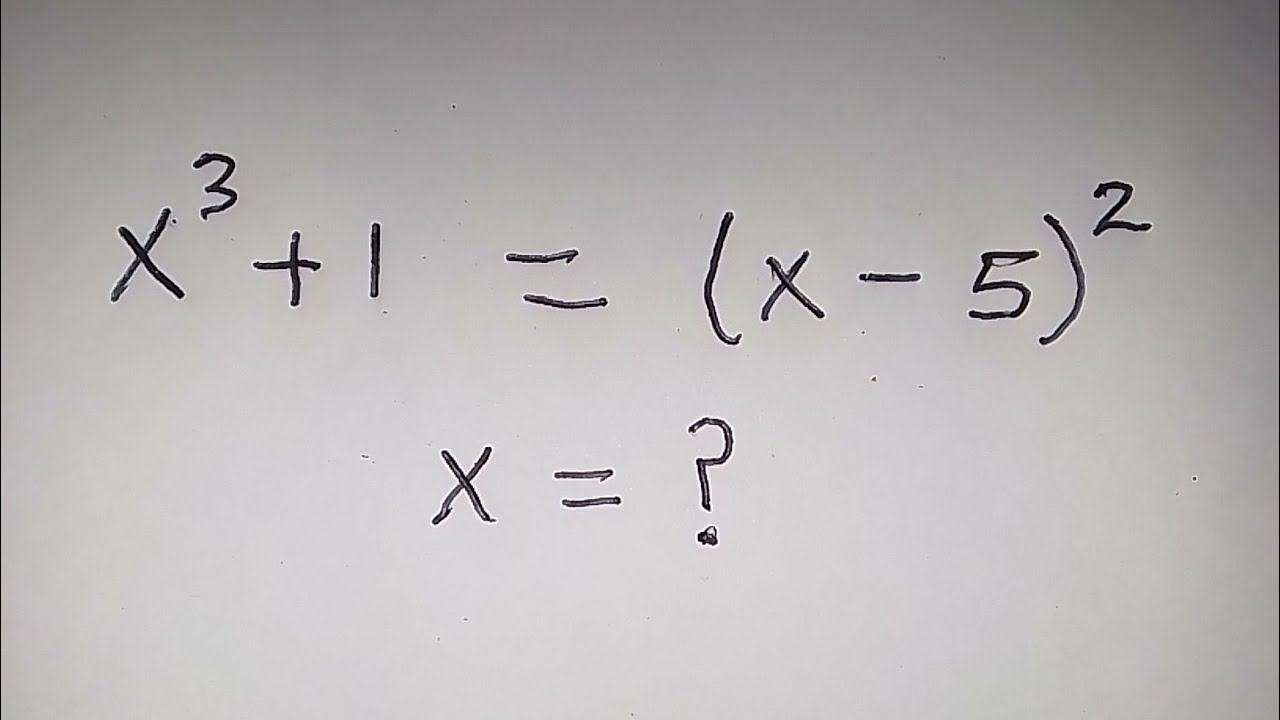 x³ + 1 = (x - 5)²
x = ?